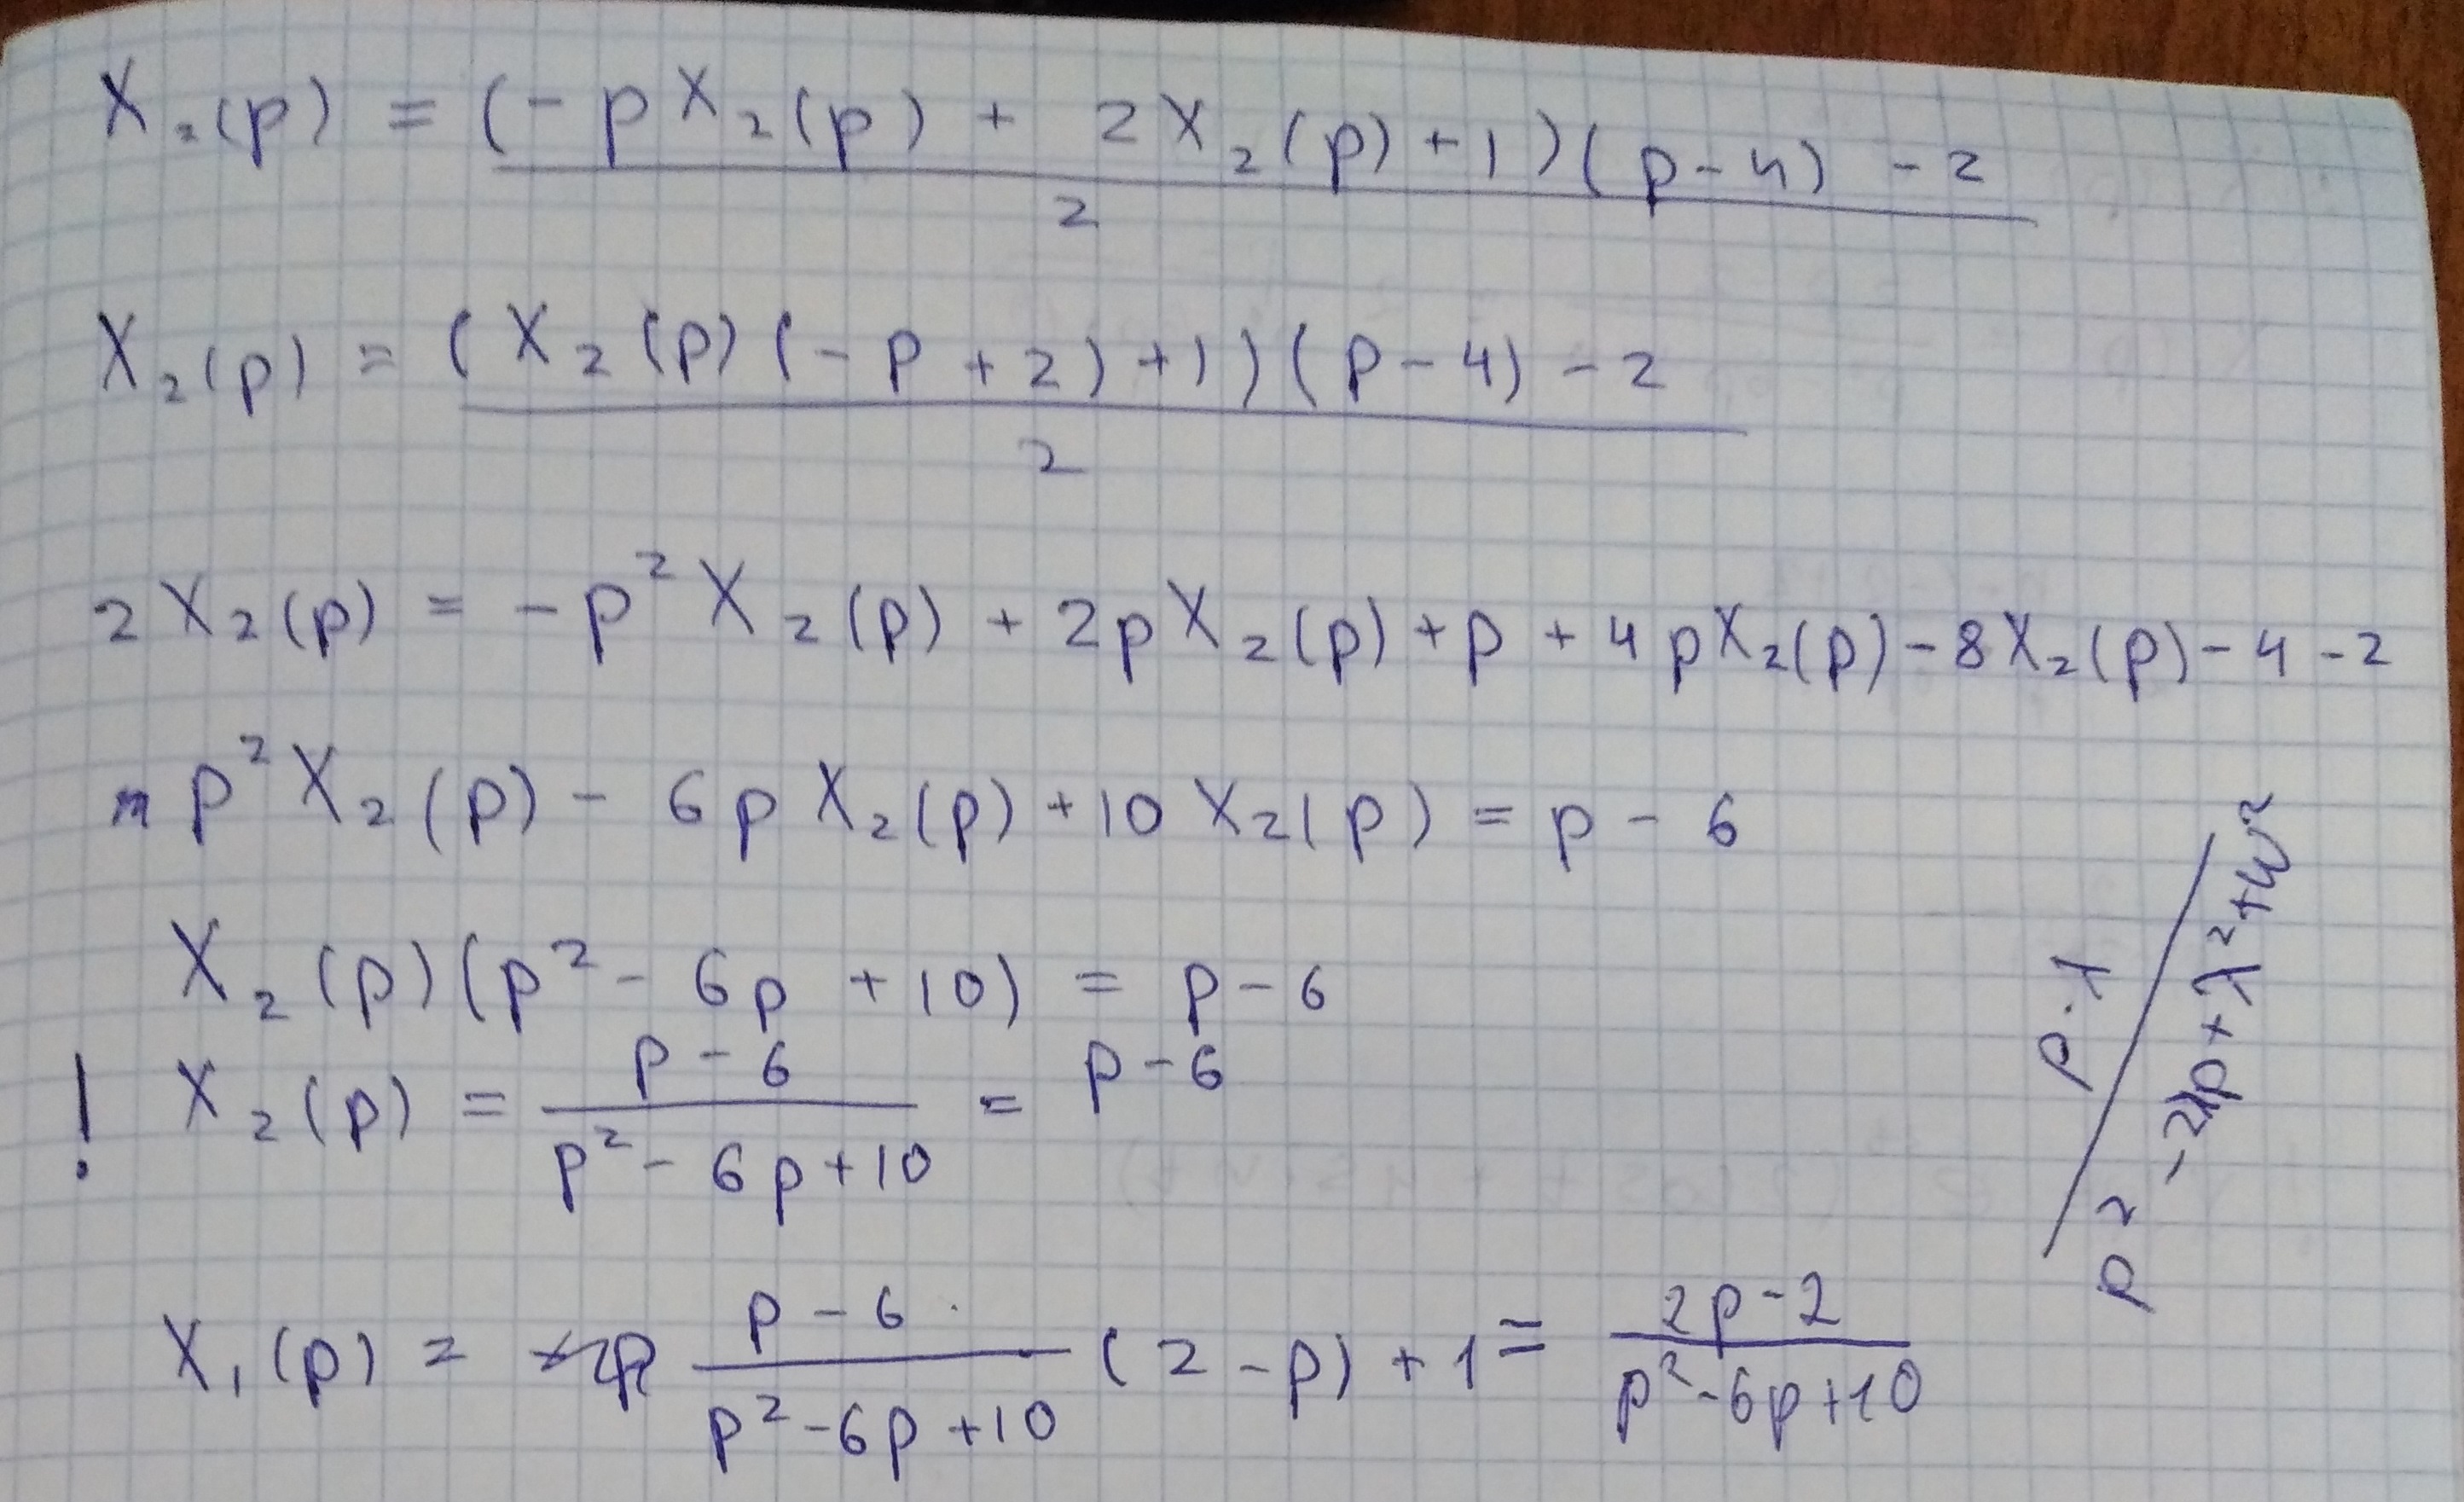 X₂(p) = (-pX₂(p) + 2X₂(p)+1)(p-4) -2
2
X₂(p) = (X₂(p)(-p+2)+1)(p-4) -2
2
2X₂(p) = -p²X₂(p) + 2pX₂(p) + p + 4pX₂(p) - 8X₂(p) - 4 - 2
p²X₂(p) - 6pX₂(p) + 10X₂(p) = p - 6
X₂(p)(p² - 6p + 10) = p - 6
! X₂(p) = p - 6 / p² - 6p + 10 = p - 6
X₁(p) = p - 6 / p² - 6p + 10 (2 - p) + 1 = 2p - 2 / p² - 6p + 10
p - λ / p² - 2λp + λ² + w²